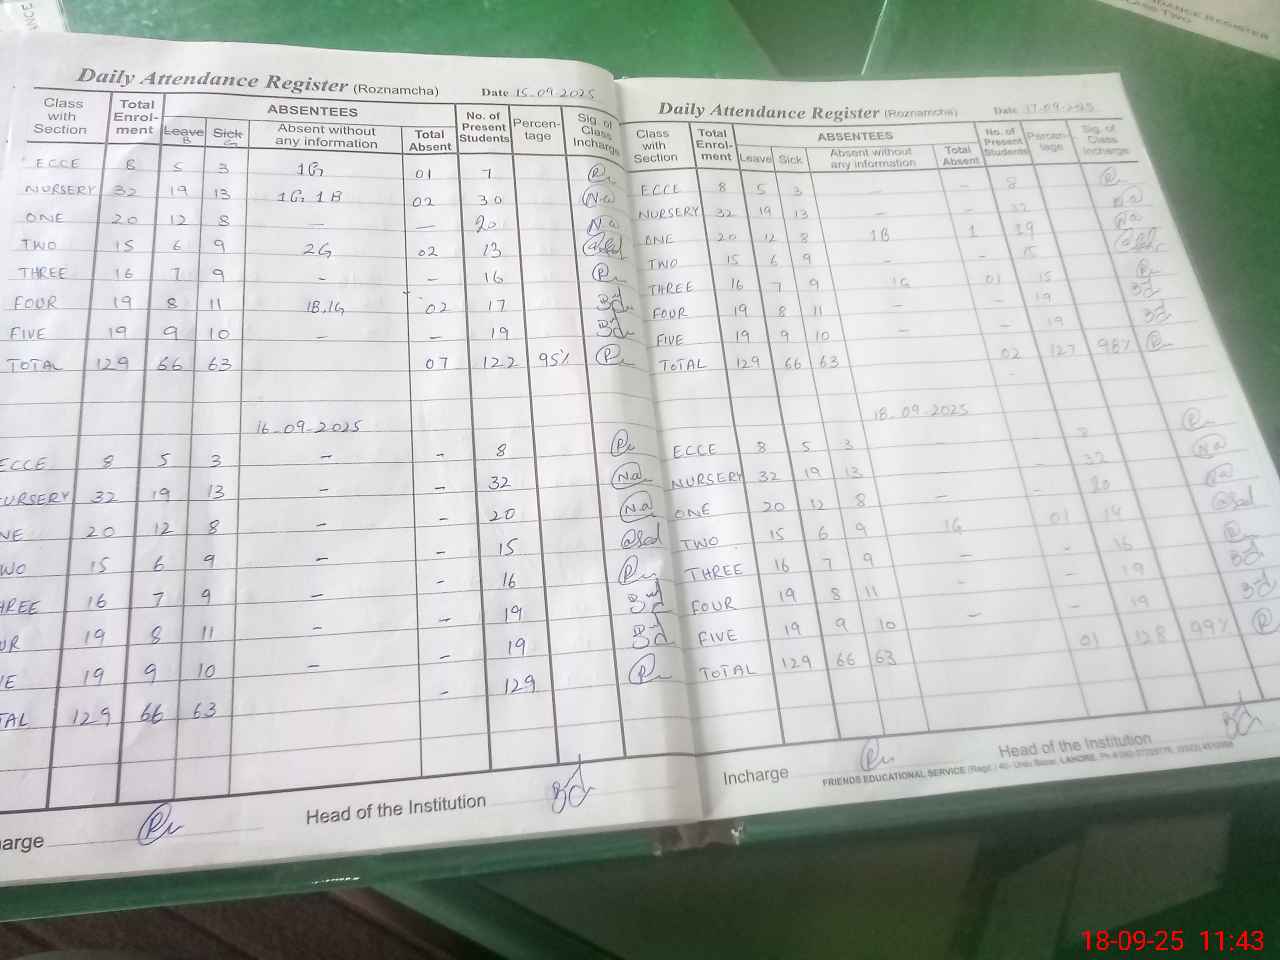 Daily Attendance Register (Roznamcha) Date 15-09-2025
Class with Section Total Enrol-ment ABSENTEES Leave B Sick G Absent without any information Total Absent No. of Present Students Percen-tage Sig. of Class Incharge
ECCE 8 5 3 1G 01 7
NURSERY 32 19 13 1G, 1B 02 30 Na
ONE 20 12 8 — — 20 Na
TWO 15 6 9 2G 02 13
THREE 16 7 9 - - 16
FOUR 19 8 11 1B,1G 02 17
FIVE 19 9 10 - - 19
TOTAL 129 66 63 07 122 95%
16-09-2025
ECCE 8 5 3 - - 8
URSERY 32 19 13 - - 32 Na
NE 20 12 8 - - 20 Na
WO 15 6 9 - - 15
HREE 16 7 9 - - 16
UR 19 8 11 - - 19
IE 19 9 10 - - 19
TAL 129 66 63 - 129
arge Head of the Institution
Daily Attendance Register (Roznamcha) Date 17-09-2025
Class with Section Total Enrol-ment ABSENTEES Leave Sick Absent without any information Total Absent No. of Present Students Percen-tage Sig. of Class Incharge
ECCE 8 5 3 - - 8
NURSERY 32 19 13 - - 32 Na
ONE 20 12 8 1B 1 19 Na
TWO 15 6 9 - - 15
THREE 16 7 9 1G 01 15
FOUR 19 8 11 - - 19
FIVE 19 9 10 - - 19
TOTAL 129 66 63 02 127 98%
18-09-2025
ECCE 8 5 3 8
NURSERY 32 19 13 - 32 Na
ONE 20 12 8 - - 20 Na
TWO 15 6 9 1G 01 14
THREE 16 7 9 - - 16
FOUR 19 8 11 - - 19
FIVE 19 9 10 - - 19
TOTAL 129 66 63 01 128 99%
Incharge Head of the Institution
FRIENDS EDUCATIONAL SERVICE (Regd.) 40- Urdu Bazar, LAHORE.
18-09-25 11:43